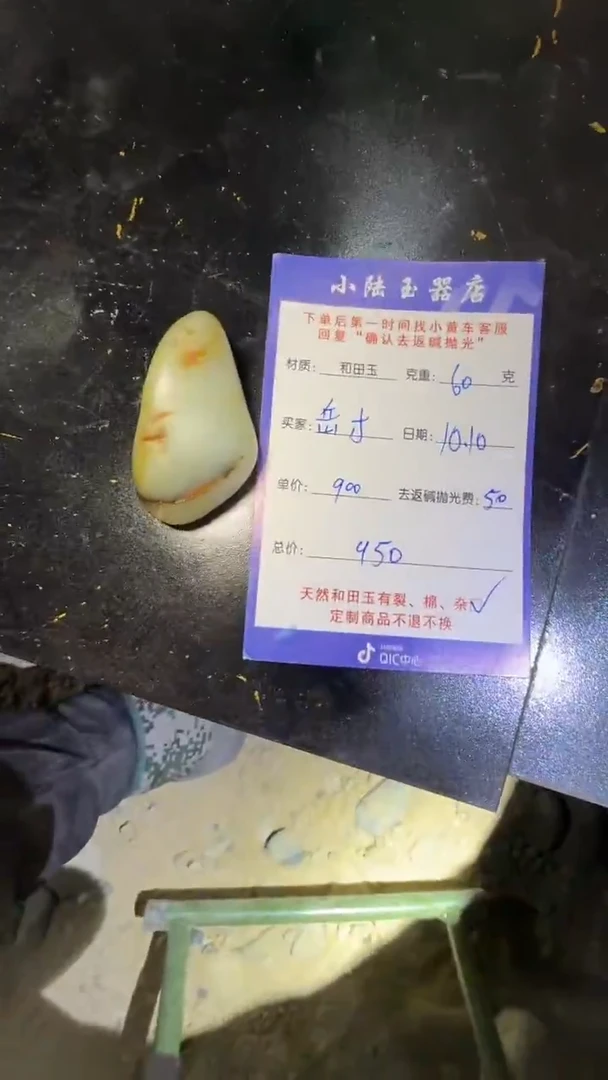 小陆玉器店
下单后第一时间找小黄车客服
回复“确认去返碱抛光”
材质: 和田玉 克重: 60 克
买家: 岳才 日期: 10.10
单价: 900 去返碱抛光费: 50
总价: 950
天然和田玉有裂、棉、杂
定制商品不退不换
QIC中心